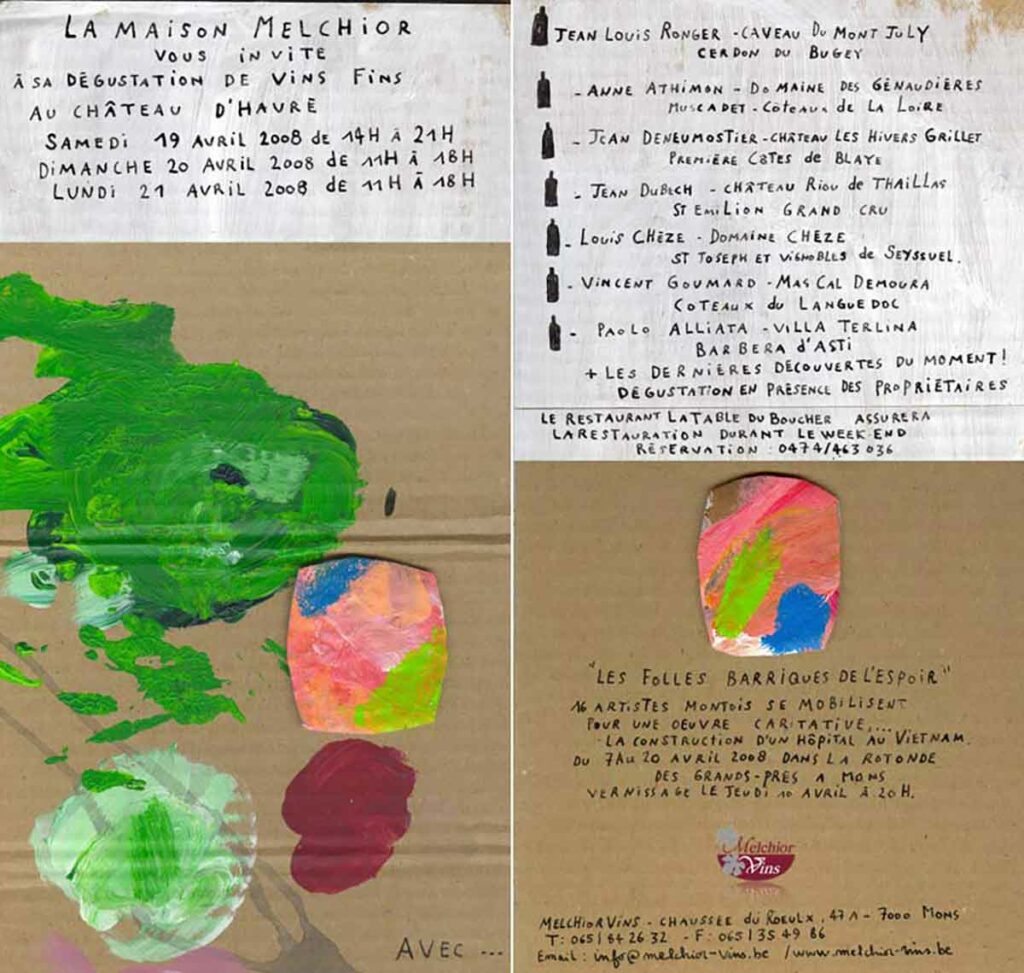 LA MAISON MELCHIOR
VOUS INVITE
À SA DÉGUSTATION DE VINS FINS
AU CHÂTEAU D'HAVRÉ
SAMEDI 19 AVRIL 2008 de 14H À 21H
DIMANCHE 20 AVRIL 2008 DE 11H À 18H
LUNDI 21 AVRIL 2008 de 11H À 18H
AVEC ...
JEAN LOUIS RONGER - CAVEAU DU MONT JULY
CERDON DU BUGEY
- ANNE ATHIMON - DOMAINE DES GÉNAUDIÈRES
MUSCADET - COTEAUX de LA LOIRE
- JEAN DENEUMOSTIER - CHÂTEAU LES HIVERS GRILLET
PREMIÈRE CÔTES de BLAYE
- JEAN DUBECH - CHÂTEAU RIOU de THAILLAS
ST EMILION GRAND CRU
- LOUIS CHÈZE - DOMAINE CHÈZE
ST JOSEPH ET VIGNOBLES de SEYSSUEL.
- VINCENT GOUMARD - MAS CAL DEMOURA
COTEAUX du LANGUEDOC
- PAOLO ALLIATA - VILLA TERLINA
BARBERA d'ASTI
+ LES DERNIÈRES DÉCOUVERTES DU MOMENT!
DÉGUSTATION EN PRÉSENCE DES PROPRIÉTAIRES
LE RESTAURANT LA TABLE DU BOUCHER ASSURERA
LA RESTAURATION DURANT LE WEEK-END
RÉSERVATION : 0474/463 036
"LES FOLLES BARRIQUES DE L'ESPOIR"
16 ARTISTES MONTOIS SE MOBILISENT
POUR UNE OEUVRE CARITATIVE,...
LA CONSTRUCTION D'UN HÔPITAL AU VIETNAM.
DU 7 AU 20 AVRIL 2008 DANS LA ROTONDE
DES GRANDS-PRÉS A MONS
VERNISSAGE LE JEUDI 10 AVRIL À 20H.
Melchior
Vins
MELCHIOR VINS - CHAUSSÉE du ROEULX, 47A - 7000 MONS
T: 065/84 26 32 - F: 065/35 49 86
Email : info@melchior-vins.be /www.melchior-vins.be